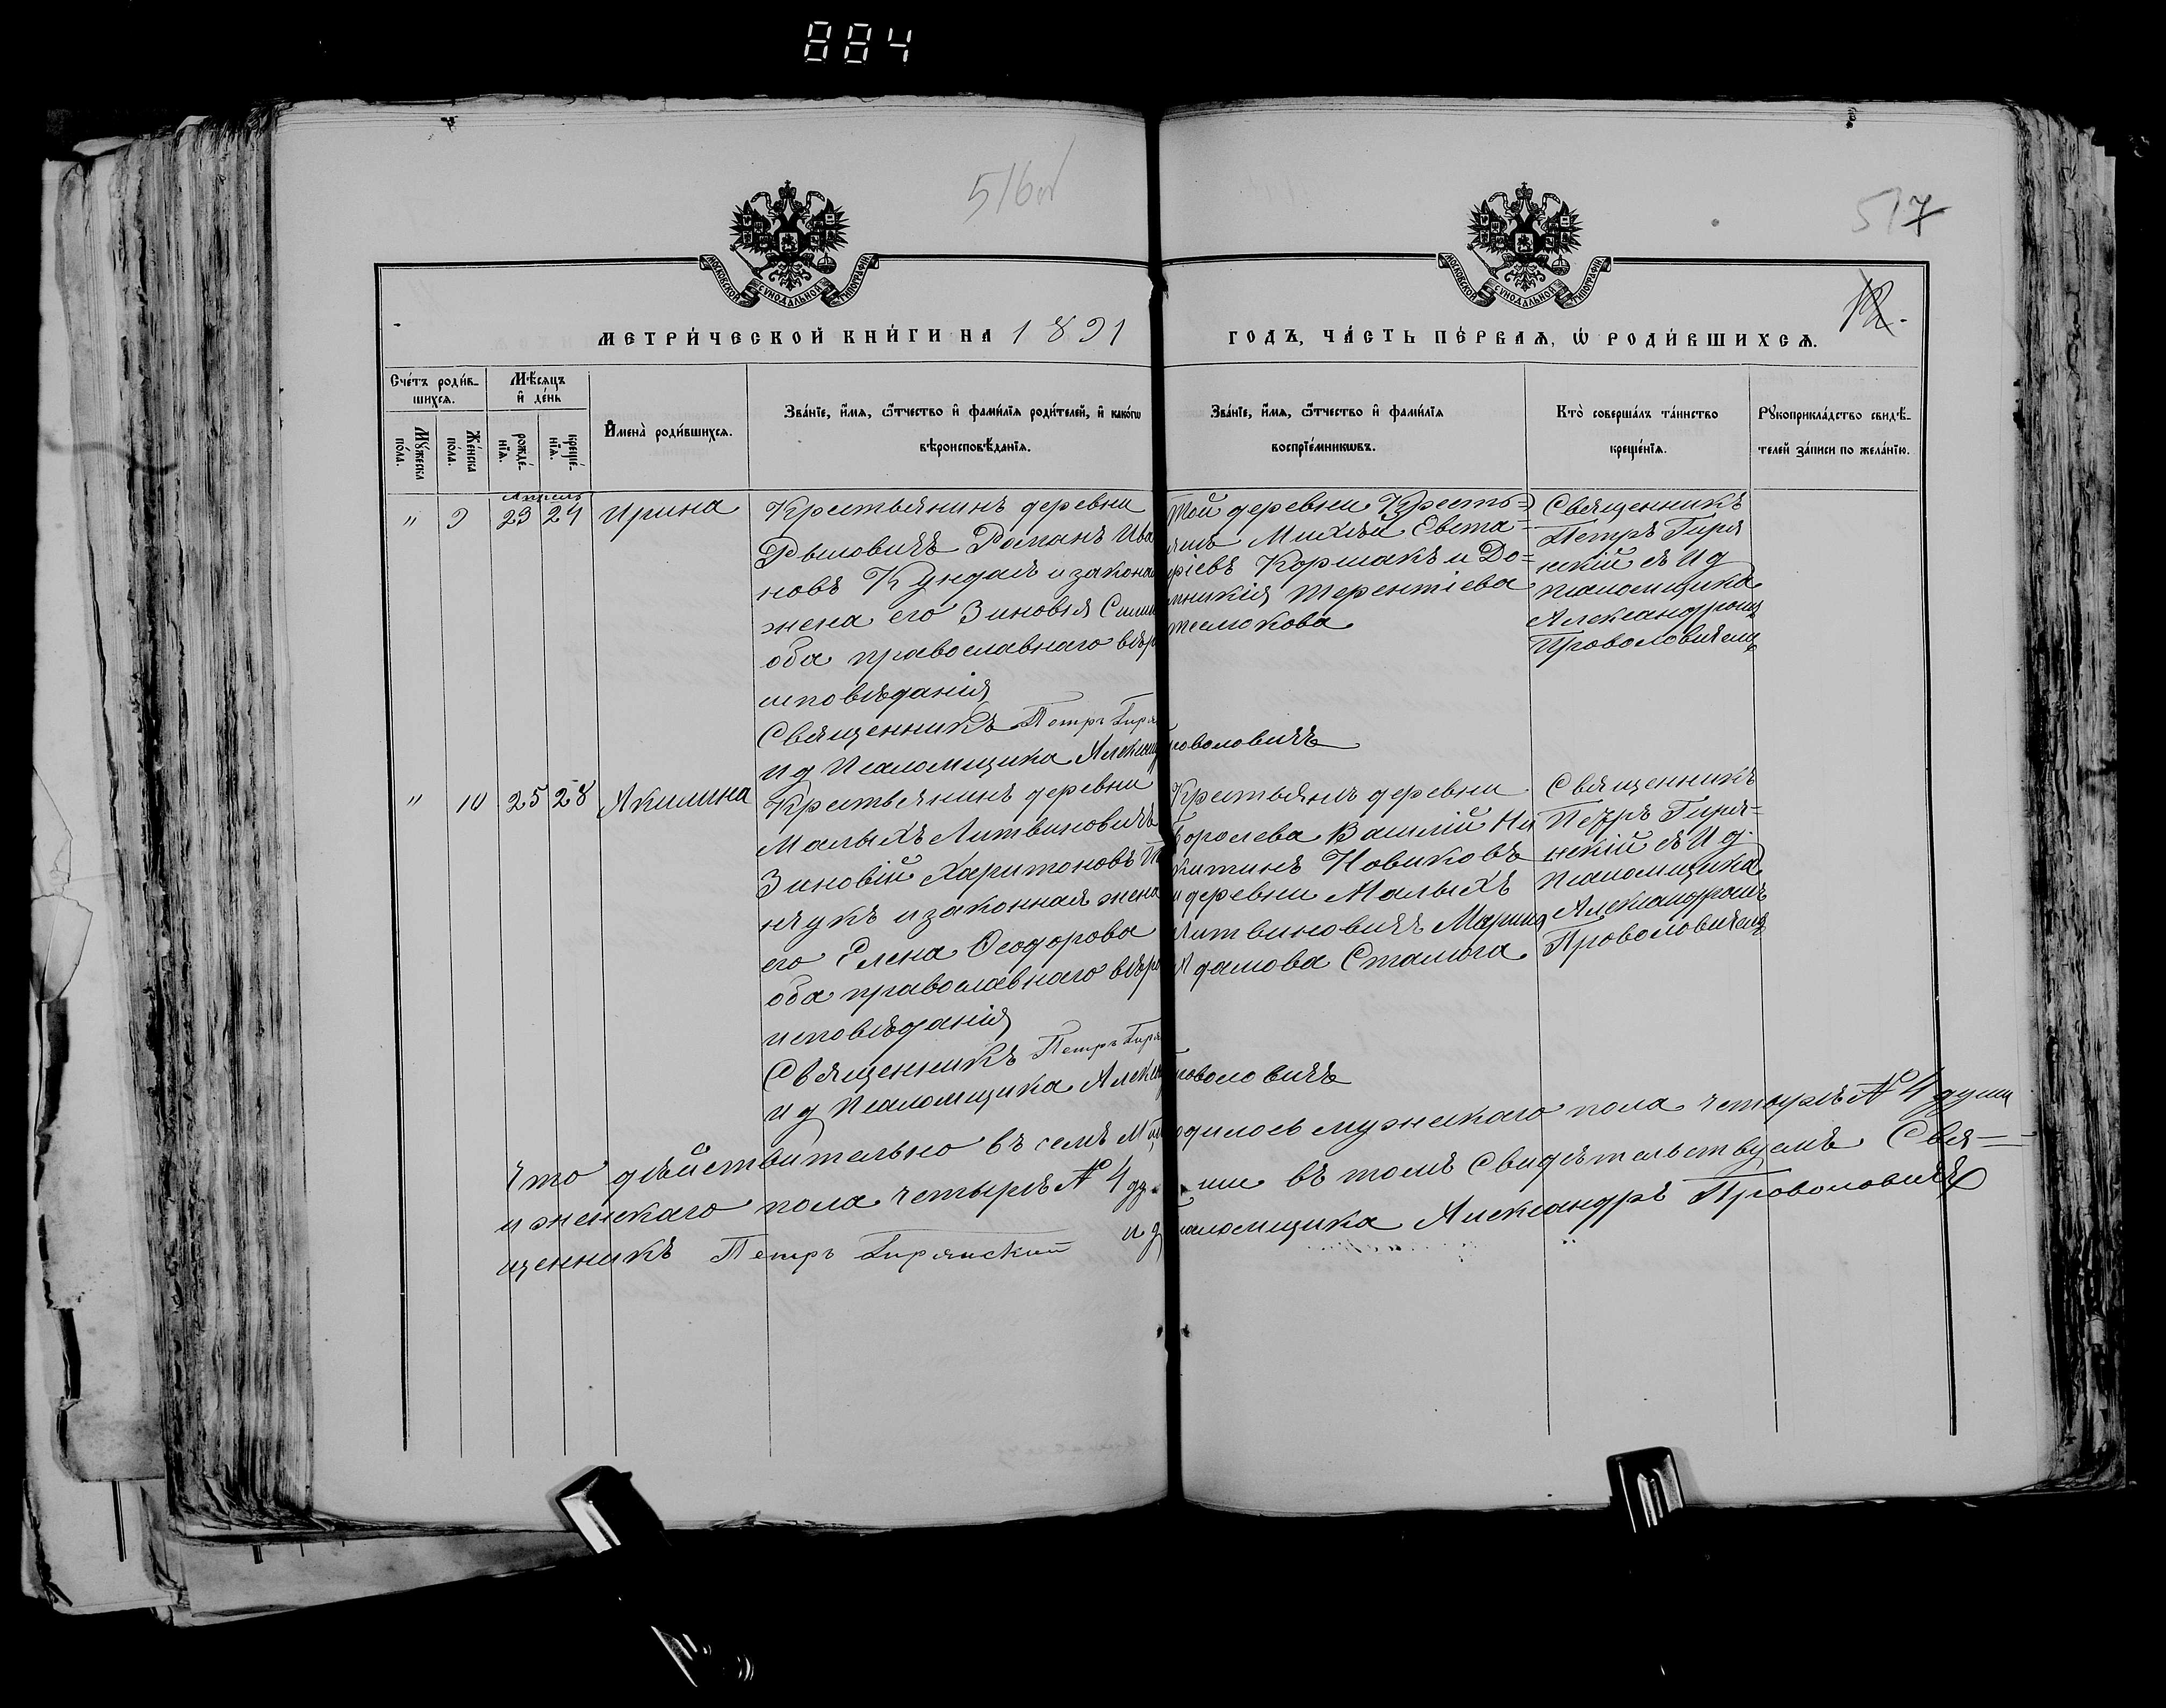 884
516об
517
МОСКОВСКОЙ СѴНОДАЛЬНОЙ ТИПОГРАФІИ
МОСКОВСКОЙ СѴНОДАЛЬНОЙ ТИПОГРАФІИ
12.
МЕТРИ́ЧЕСКОЙ КНИ́ГИ НА 1891
ГОДЪ, ЧА́СТЬ ПЕ́РВАѦ, Ѡ҆ РОДИ́ВШИХСѦ.
Сче́тъ роди́в-
шихсѧ.
Мѣ́сѧцъ
и҆ де́нь
И҆мена̀ роди́вшихсѧ.
Зва́нїе, и҆́мѧ, ѻ҆́тчество и҆ фами́лїѧ роди́телей, и҆ како́гѡ
вѣроисповѣ́данїѧ.
Зва́нїе, и҆́мѧ, ѻ҆́тчество и҆ фами́лїѧ
воспрїе́мникѡвъ.
Кто̀ соверша́лъ та́инство
креще́нїѧ.
Рꙋкоприкла́дство свидѣ́-
телей за́писи по жела́нїю.
Мꙋ́жеска
по́ла.
Же́нска
по́ла.
рожде́-
нїѧ.
креще́-
нїѧ.
Апрель
" 9 23 24 Ирина
Крестьянинъ деревни
Романъ Ива
новъ Кундаль и законная
жена его Зиновья
оба православнаго вѣро
исповѣданія
Священникъ Петръ Гиря
И д Псаломщика Александ
той деревни Кресть=
Евста=
фіевъ Коршакъ и До=
мникія Терентіева
Священникъ
Петръ Гиря
нскій съ И д
псаломщика
Александромъ
Проволовичемъ
роволовичъ
" 10 25 28 Акилина
Крестьянинъ деревни
Малыхъ Литвиновичъ
Зиновій Харитоновъ
нчукъ и законная жена
его Елена Ѳеодорова
оба православнаго вѣро
исповѣданія
Священникъ Петръ Гиря
И д Псаломщика Александ
Крестьянъ деревни
Королева Василій Ни
китинъ Новиковъ
и деревни Малыхъ
Литвиновичъ Марина
Адамова
Священникъ
Петръ Гиря=
нскій съ И д.
псаломщика
Александромъ
Проволовичемъ
роволовичъ
Что дѣйствительно въ семъ родилось мужескаго пола четыре № 4 души
и женскаго пола четыре № 4 души въ томъ свидѣтельствуемъ Свя=
щенникъ Петръ Гирянскій и д псаломщика Александръ Проволовичъ